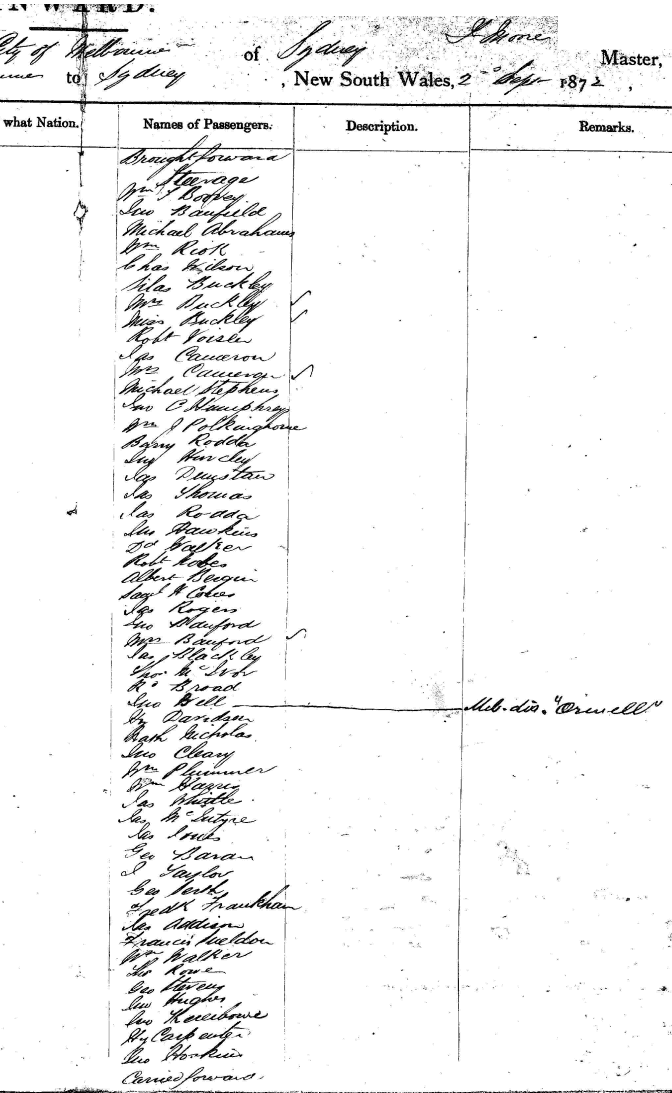 INWARD.
City of Melbourne of Sydney J Moore Master,
to Sydney , New South Wales, 2 Sept 1872 ,
what Nation. Names of Passengers. Description. Remarks.
Brought forward
Steerage
Wm T Boovey
Jno Banfield
Michael Abrahams
Wm Riok
Chas Wilson
Silas Buckley
Mrs Buckley ✓
Miss Buckley ✓
Robt Voisler
Jas Cameron
Mrs Cameron ✓
Michael Stephens
Jno C Humphrey
Wm J Polkinghorne
Barry Rodda
Hinckley
Jas Dunstan
Jas Thomas
Jas Rodda
Jno Hawkins
Dd Walker
Robt
Albert Bergin
Saml H
Jas Rogers
Jno Banford
Mrs Banford ✓
Jas Blackley
Thos McIvor
Rd Broad
Jno Bell Melb. dis. "Orwell"
Hy Davidson
Nicholas
Jno Cleary
Wm Plummer
Wm Harris
Jas Whittle
Jas McIntyre
Jas Jones
Geo Baran
J Taylor
Geo
Fredk Frankham
Jas Addison
Francis Weldon
Wm Walker
Rowe
Geo Stevens
Jno Hughes
Jno
Hy Carpenter
Jno Hoskins
Carried forward.